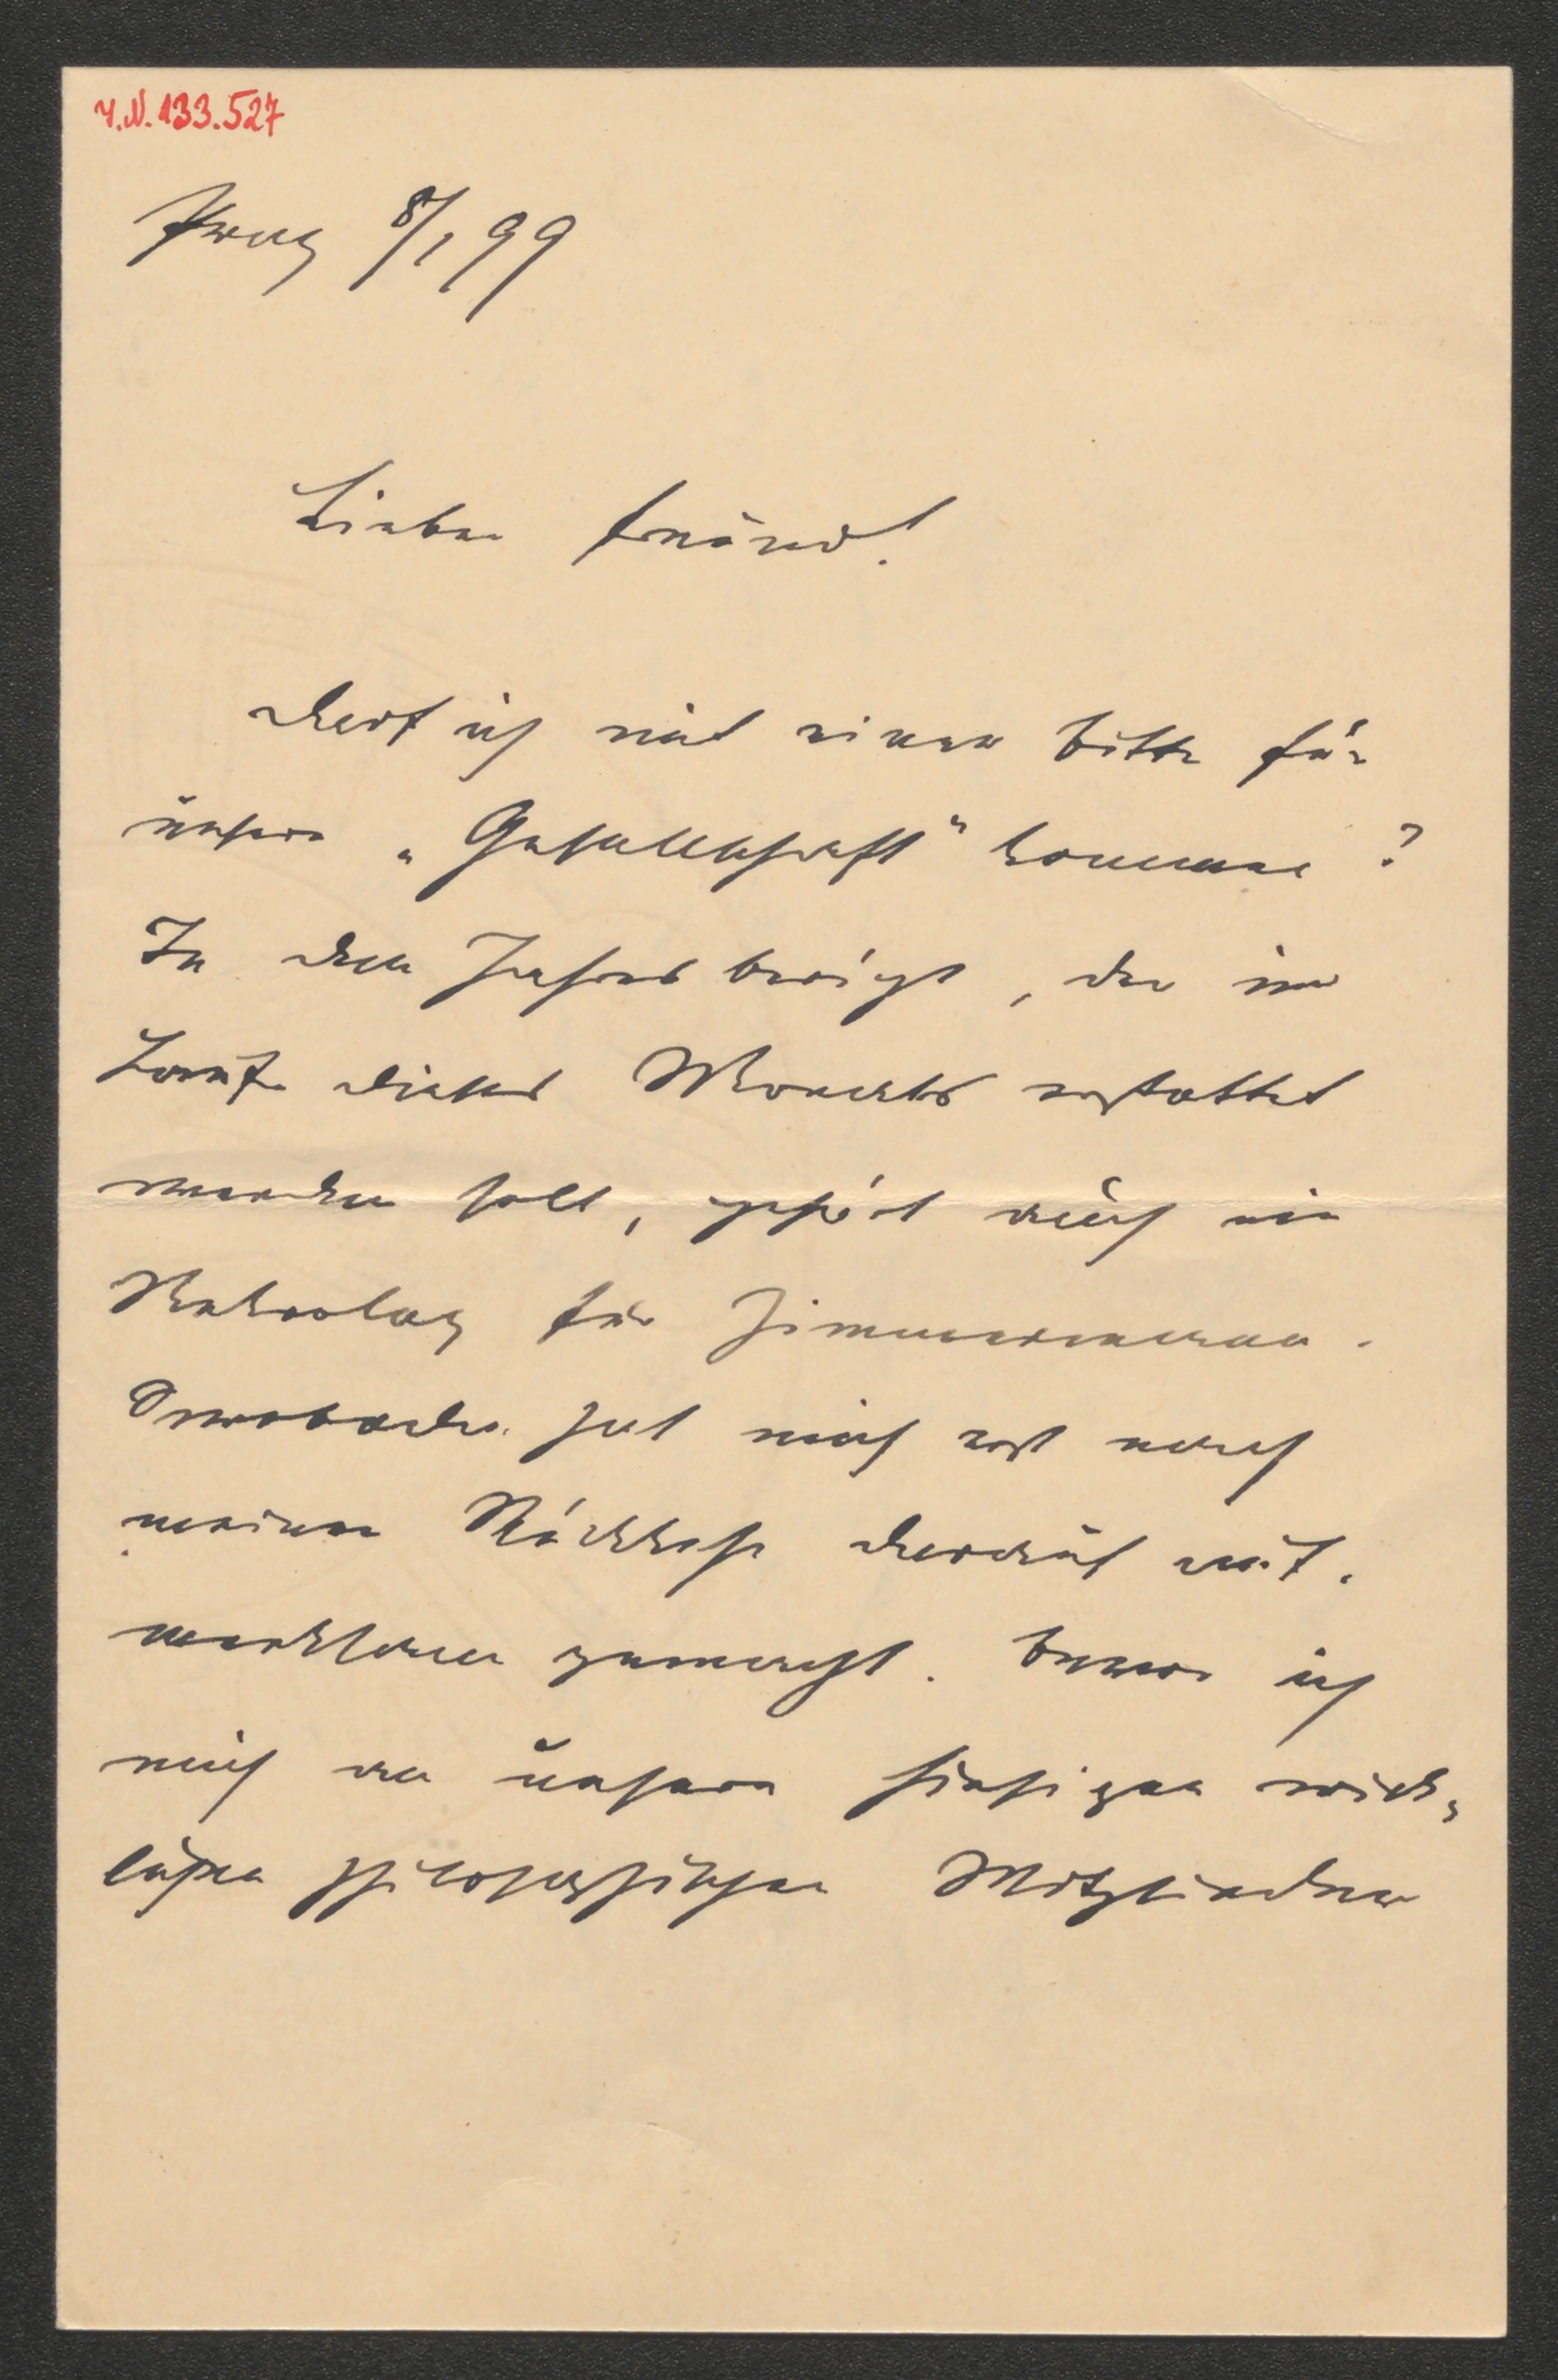 I.N. 133.527
Prag 8/1 99
Lieber Freund!
Darf ich mit einer Bitte für
unsere „Gesellschaft" kommen?
In den Jahresbericht, der im
Laufe dieses Monats erstattet
werden soll, gehört auch ein
Nekrolog für Zimmermann.
Swoboda hat mich erst nach
meiner Rückkehr darauf auf-
merksam gemacht. Bevor ich
mich an unsere hiesigen wirk-
lichen philosophischen Mitglieder